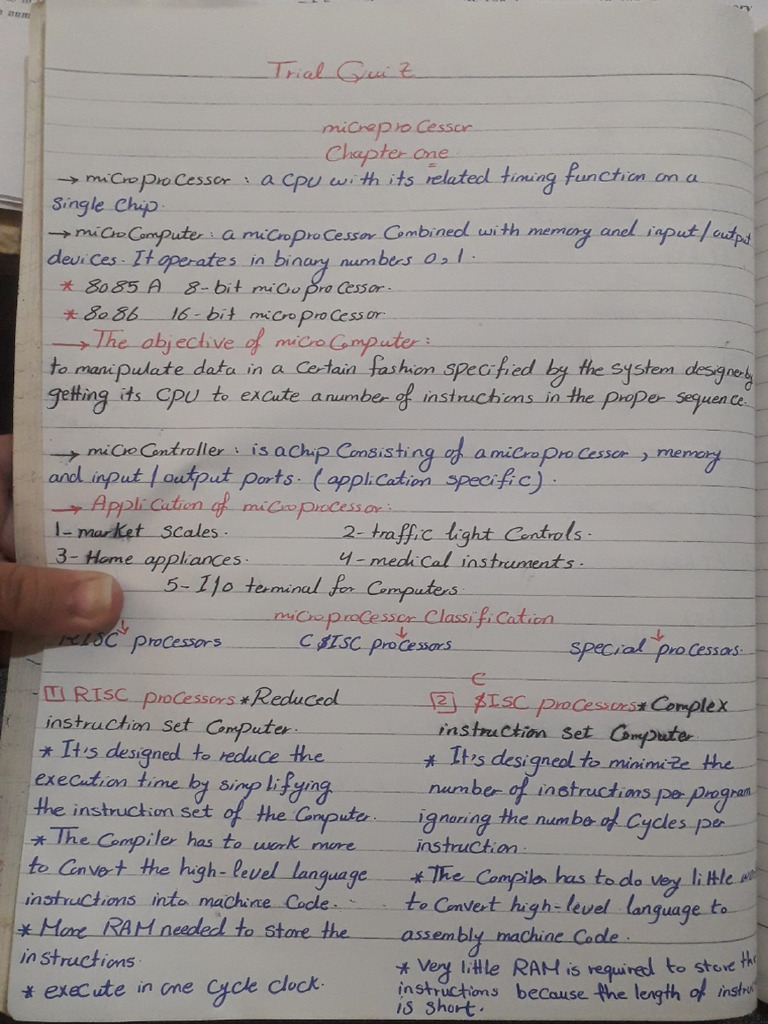 Trial Quiz
microprocessor
Chapter one
→ microprocessor : a CPU with its related timing function on a
single chip.
→ microComputer : a microprocessor Combined with memory and input / output
devices. It operates in binary numbers 0,1.
* 8085 A 8-bit microprocessor.
* 8086 16-bit microprocessor
→ The objective of microComputer :
to manipulate data in a Certain fashion specified by the system designer by
getting its CPU to excute a number of instructions in the proper sequence.
→ microController : is a chip Consisting of a microprocessor, memory
and input / output ports. (application specific).
→ Application of microprocessor:
1- market scales. 2- traffic light Controls.
3- Home appliances. 4- medical instruments.
5- I/o terminal for Computers
microprocessor Classification
↓ ↓ ↓
RISC processors CISC processors special processors.
1 RISC processors * Reduced
instruction set Computer.
* It's designed to reduce the
execution time by simplifying
the instruction set of the Computer.
* The Compiler has to work more
to Convert the high-level language
instructions into machine Code.
* More RAM needed to store the
instructions
* execute in one cycle clock.
2 CISC processors * Complex
instruction set Computer
* It's designed to minimize the
number of instructions per program
ignoring the number of Cycles per
instruction.
* The Compiler has to do very little
to Convert high-level language to
assembly machine Code.
* Very little RAM is required to store the
instructions because the length of
is short.